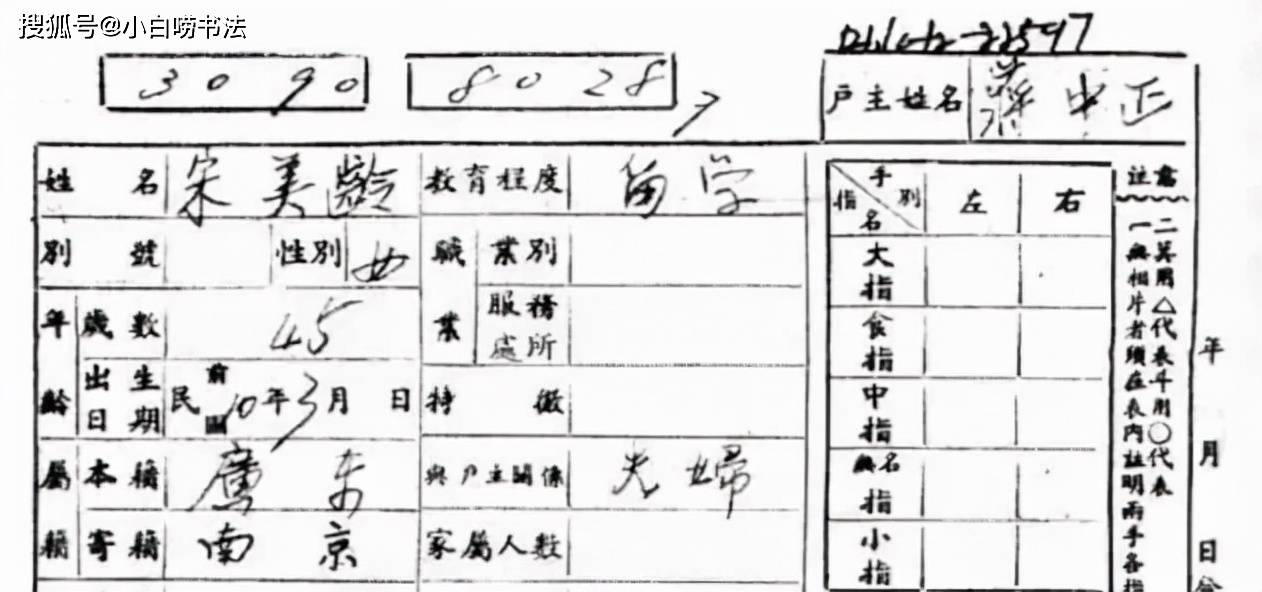 搜狐号@小白唠书法
3090
8028
7
戶主姓名 蔣中正
姓名 宋美齡 教育程度 留学
別號 性別 女 職業 業別
服務處所
年齡 歲數 45
出生日期 民前國10年3月 日 特徵
屬籍 本籍 廣东 與戶主關係 夫婦
寄籍 南京 家屬人數
手別 指名 左 右
大指
食指
中指
無名指
小指
注意
一無相片者須在表內註明兩手各指
二箕用△代表斗用○代表
年 月 日